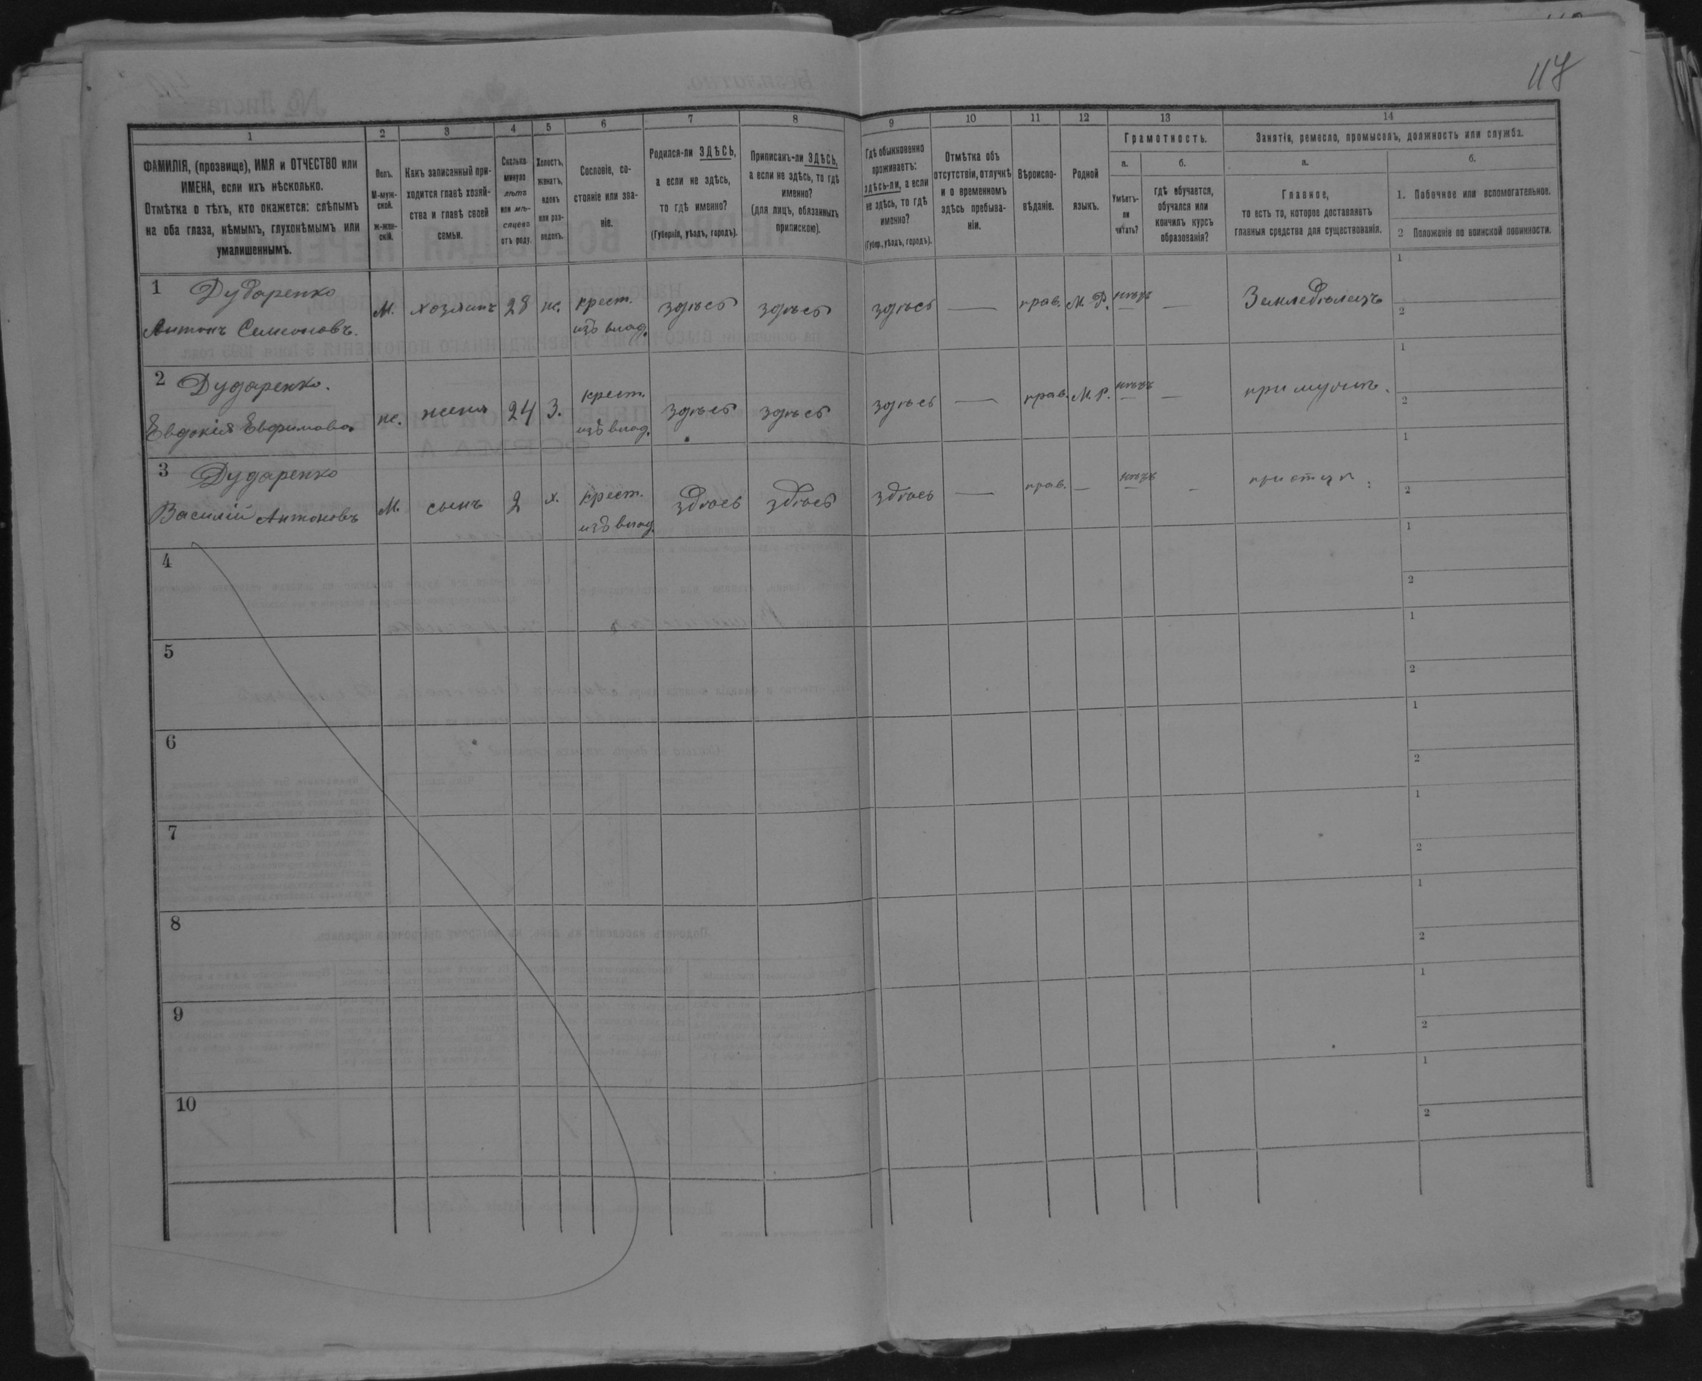 117
1 2 3 4 5 6 7 8 9 10 11 12 13 14
ФАМИЛІЯ, (прозвище), ИМЯ и ОТЧЕСТВО или
ИМЕНА, если ихъ нѣсколько.
Отмѣтка о тѣхъ, кто окажется: слѣпымъ
на оба глаза, нѣмымъ, глухонѣмымъ или
умалишеннымъ.
Полъ.
М-муж-
ской.
Ж-жен-
скій.
Какъ записанный при-
ходится главѣ хозяй-
ства и главѣ своей
семьи.
Сколько
минуло
лѣтъ
или мѣ-
сяцевъ
отъ роду.
Холостъ,
женатъ,
вдовъ
или раз-
веденъ.
Сословіе, со-
стояніе или зва-
ніе.
Родился-ли ЗДѢСЬ,
а если не здѣсь,
то гдѣ именно?
(Губернія, уѣздъ, городъ).
Приписанъ-ли ЗДѢСЬ,
а если не здѣсь, то гдѣ
именно?
(для лицъ, обязанныхъ
припискою).
Гдѣ обыкновенно
проживаетъ:
здѣсь-ли, а если
не здѣсь, то гдѣ
именно?
(Губер., уѣздъ, городъ).
Отмѣтка объ
отсутствіи, отлучкѣ
и о временномъ
здѣсь пребыва-
ніи.
Вѣроиспо-
вѣданіе.
Родной
языкъ.
Грамотность.
а.
Умѣетъ-
ли
читать?
б.
Гдѣ обучается,
обучался или
кончилъ курсъ
образованія?
Занятія, ремесло, промыселъ, должность или служба.
а.
Главное,
то есть то, которое доставляетъ
главныя средства для существованія.
б.
1. Побочное или вспомогательное.
2 Положеніе по воинской повинности.
1 Дударенко
Антонъ Семеоновъ.
М. хозяинъ 28 ж. крест.
изъ влад. здѣсь здѣсь здѣсь — прав. М. Р. нѣтъ — Земледѣлецъ
1
2
2 Дударенко.
Евдокія Евфимова
ж. жена 24 З. крест.
изъ влад. здѣсь здѣсь здѣсь — прав. М. Р. нѣтъ — при мужѣ.
1
2
3 Дударенко
Василій Антоновъ
М. сынъ 2 х. крест.
изъ влад. здѣсь здѣсь здѣсь — прав. — нѣтъ — при отцѣ
1
2
4
1
2
5
1
2
6
1
2
7
1
2
8
1
2
9
1
2
10
1
2